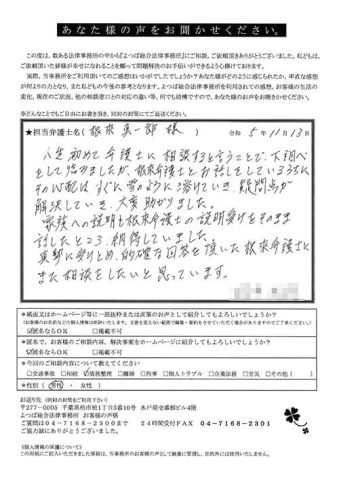 あなた様の声をお聞かせください。
この度は、数ある法律事務所の中から『よつば総合法律事務所』にご相談、ご依頼頂きありがとうございました。私どもは、
ご依頼頂いた皆様が幸せになれることを願って問題解決のお手伝いができるよう心掛けております。
実際、当事務所をご利用頂いてのご感想はいかがでしたでしょうか？あなた様がどのように感じられたか、率直な感想
が何よりの力となり、また私どもの今後の参考となります。よつば総合法律事務所を利用されての感想、お客様の生活の
変化、現在のご状況、他の相談窓口との対応の違い等、何でも結構ですので、あなた様のお声をお聞かせください。
※どんなことでもご自由にお書き頂き、同封の封筒にてご返送ください。
★担当弁護士名(根來真一郎 様) 令和 5年11月13日
人生初めて弁護士に相談するということで、下調べ
をして臨みましたが、根來弁護士とお話をしているうちに
その心配はすぐに雪のように溶けていき、疑問点が
解決していき、大変助かりました。
家族への説明も根來弁護士の説明受けをそのまま
話したところ、納得していました。
真摯に受けとめ、的確な回答を頂いた根來弁護士に
また相談をしたいと思っています。
★紙面又はホームページ等に一部抜粋または直筆のお声として紹介してもよろしいでしょうか？
(お客様のお名前などの個人情報は削除いたします。文意を変えない範囲で編集・要約をさせていただく場合がありますのでご了承ください。)
☑匿名ならOK □掲載不可
★匿名で、お客様のご相談内容、解決事案をホームページに紹介してもよろしいでしょうか？
☑匿名ならOK □掲載不可
★今回のご相談内容について教えてください
□交通事故 □相続 ☑債務整理 □離婚 □刑事 □個人トラブル □企業法務 □労災 □その他( )
★性別( 男性 ・ 女性 )
お送り先 (同封の封筒をご利用下さい)
〒277-0005 千葉県柏市柏1丁目5番10号 水戸屋壱番館ビル4階
よつば総合法律事務所 お客様の声係
ご質問は04-7168-2300まで 24時間受付FAX 04-7168-2301
ご協力誠にありがとうございました。
《個人情報の保護について》
この用紙にご記入いただきました情報は、当事務所のお客様の声として厳重に管理し、目的外には使用いたしません。